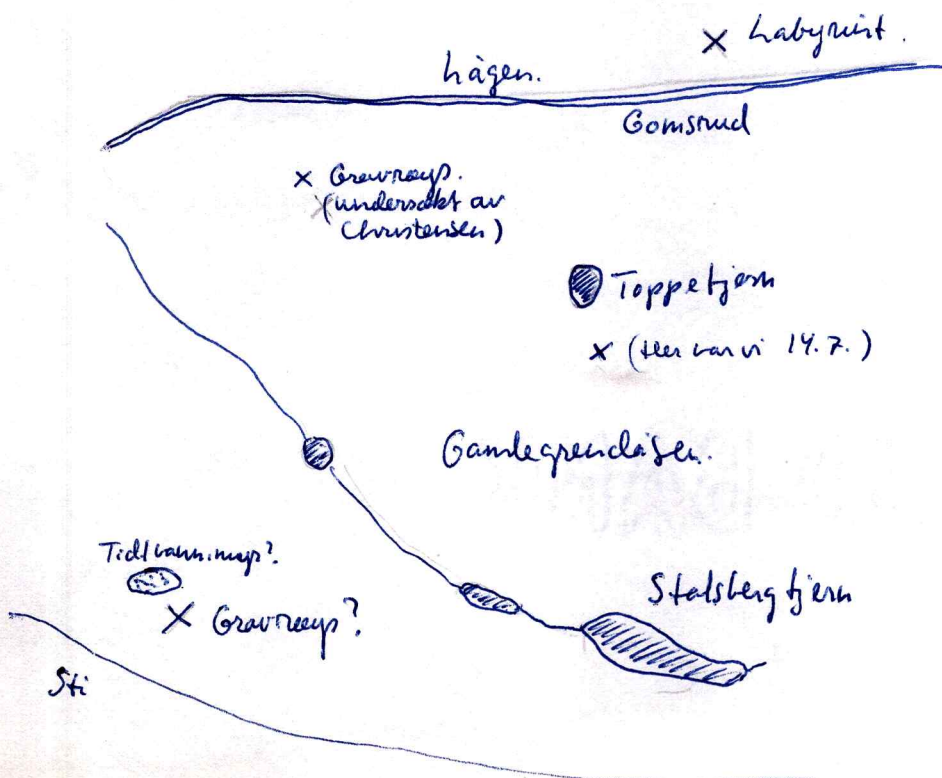 Labyrint.
Lågen.
Gomsrud
Gravrøys.
(undersøkt av
Christensen)
Toppetjern
(Her var vi 14.7.)
Gamlegrendåsen.
Gravrøys?
Stalsbergtjern
Sti